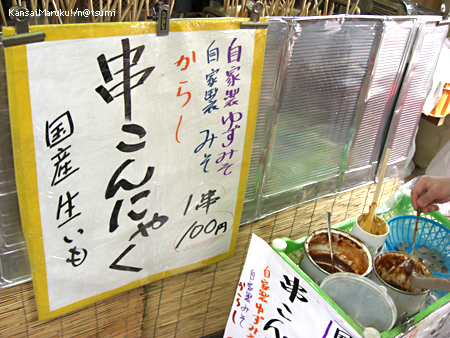 KansaiMaruku!/n@tsumi
自家製ゆずみそ
自家製みそ
からし
串こんにゃく
国産生いも
1串
100円
串こん
自家製ゆずみそ
自家製みそ
からし
国